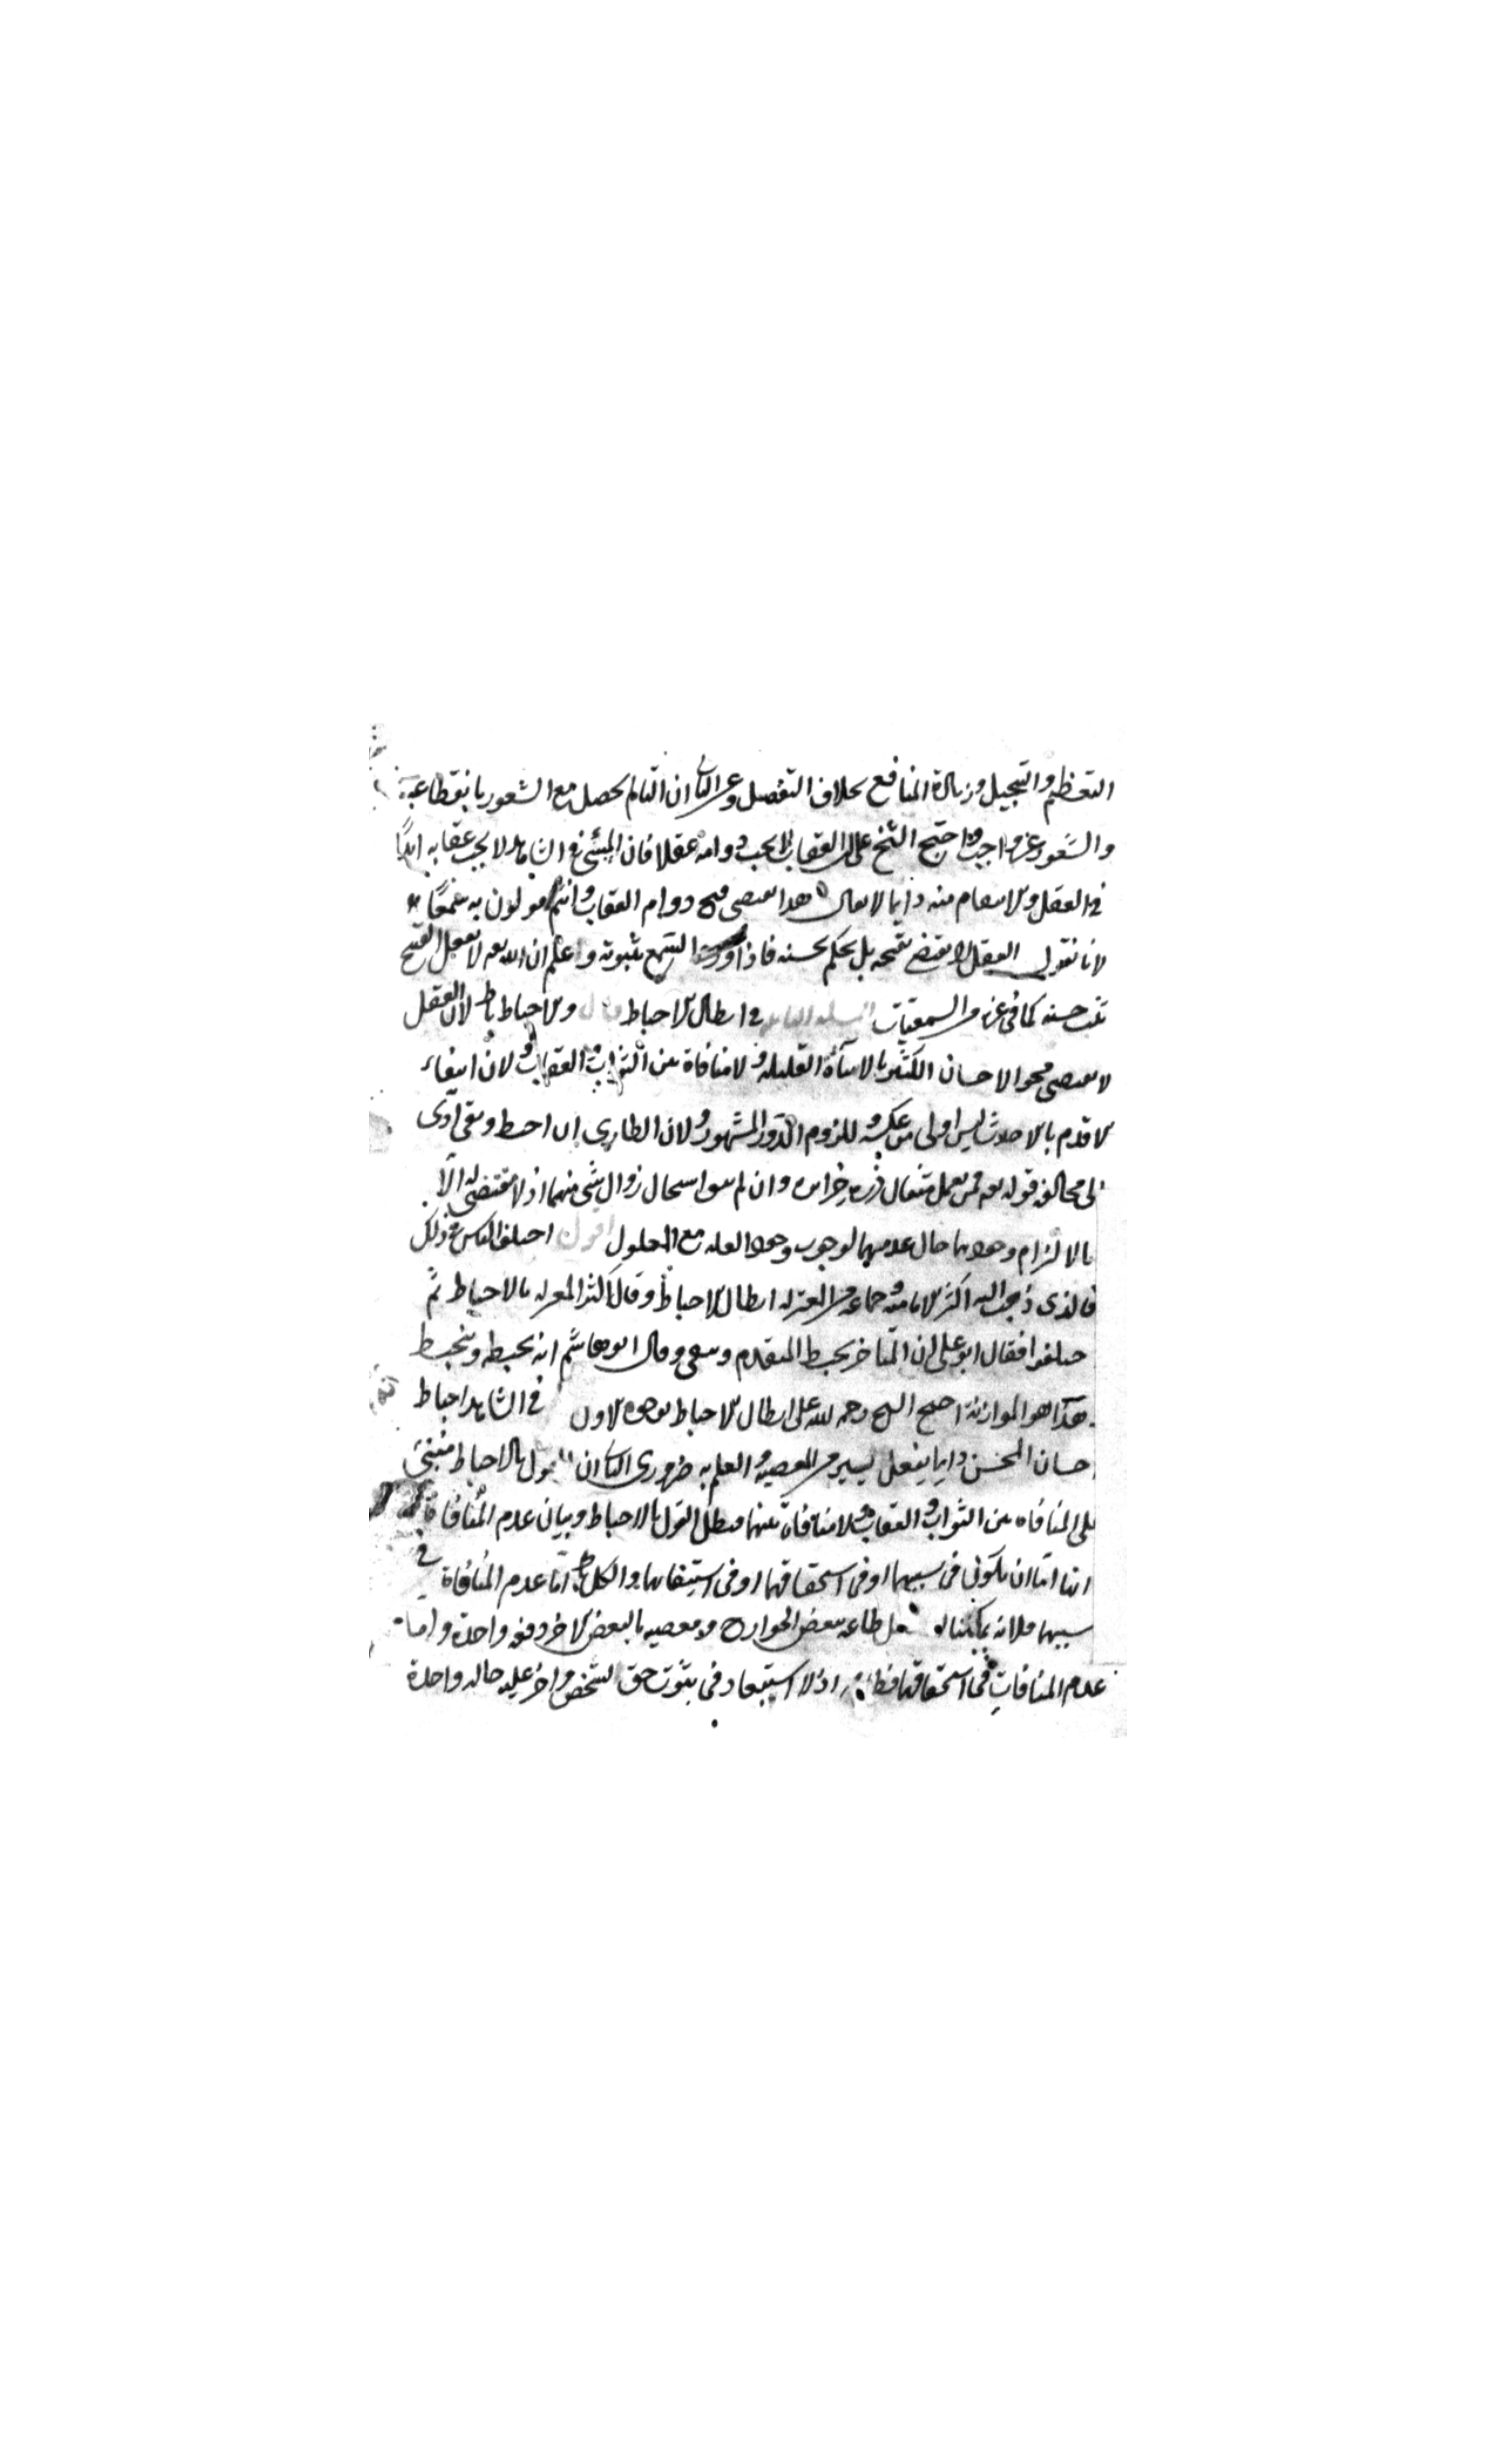 التعظيم والتبجيل وزيادة المنافع بخلاف التفضل وعن الثانى ان التألم يحصل مع الشعور بانقطاعه
والشعور غير واجب احتج الشيخ على ان العقاب لا يجب دوامه عقلا فان المسئ فى الشاهد لا يجب عقابه ابدًا
فى العقل والانتقام منه دايما لا يقال هذا يقتضى قبح دوام العقاب وانتم لا تقولون به
لانا نقول العقل لا يقتضى بقبحه بل يحكم بحسنه فاذا ورد السمع بثبوته واعلم ان الله تعه لا يفعل القبيح
ثبت حسنه كما فى غيره من السمعيات المسئلة فى ابطال الاحباط قال والاحباط باطل لان العقل
لا يقتضى محو الاحسان الكثير بالاساءة القليلة ولا منافاة بين الثواب والعقاب ولان انتفاء
الاقدم بالاحدث ليس اولى من عكسه وللزوم الدور المشهور ولان الطارى ان احبط وبقى ادى
الى مخالفة قوله تعه فمن يعمل مثقال ذرة خيرا يره وان لم يبق استحال زوال شئ منهما اذ لا مقتضى له الا
بالالتزام وجودهما حال عدمهما لوجوب وجود العلة مع المعلول اقول اختلف الناس فى ذلك
فالذى ذهب اليه اكثر الامامية وجماعة من المعتزلة ابطال الاحباط وقال اكثر المعتزلة بالاحباط ثم
ختلفوا فقال ابو على ان المتاخر يحبط المتقدم ويبقى وقال ابو هاشم انه يحبطه وينحبط
هذا هو الموازنة احتج الشيخ رحمه الله على ابطال الاحباط بوجوه الاول فى الشاهد احباط
حسان المحسن دايما بفعل يسير من المعصية والعلم به ضرورى الثانى ان القول بالاحباط مبنى
على المنافاه بين الثواب والعقاب ولا منافاة بينهما فبطل القول بالاحباط وبيان عدم المنافاة
انها اما ان تكون فى سببهما او فى استحقاقهما او فى استيفائهما والكل بط اما عدم المنافاة فى
سببهما فلانه يمكننا فعل طاعة ببعض الجوارح ومعصيه بالبعض الاخر دفعه واحدة واما
عدم المنافات فى استحقاقهما اذ لا استبعاد فى ثبوت حق لشخص واخر عليه حاله واحدة